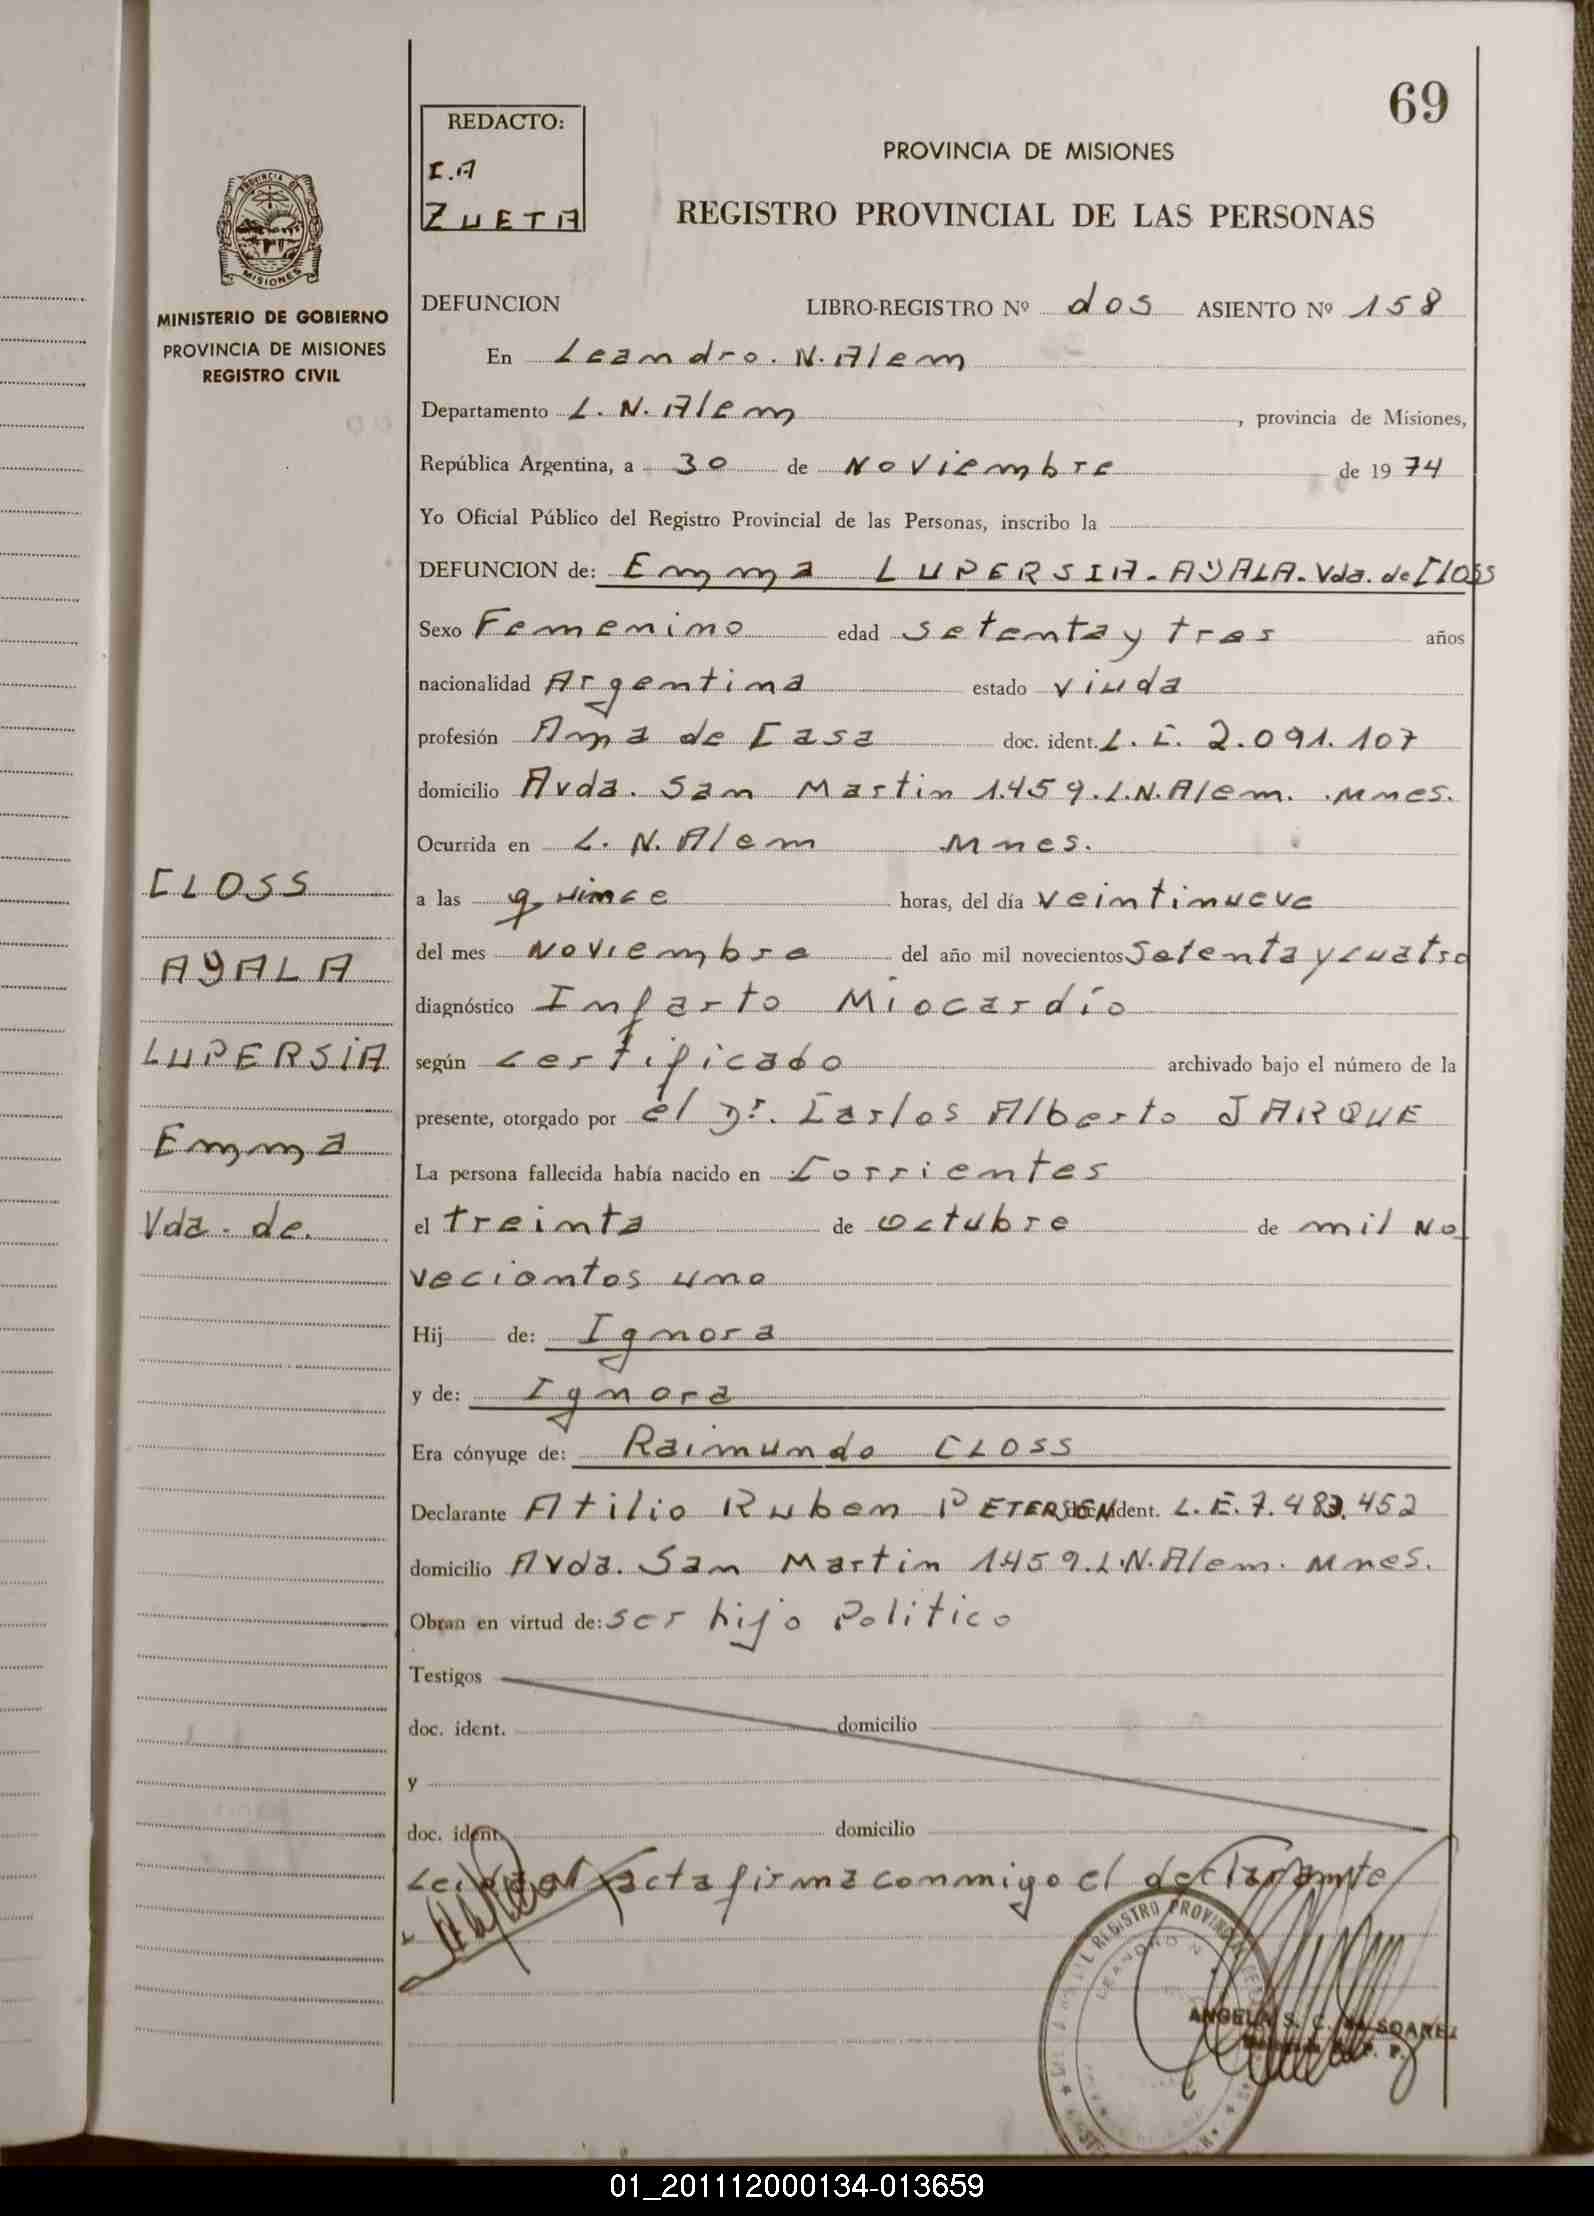 69
REDACTO:
C.A
ZUETA
PROVINCIA DE MISIONES
REGISTRO PROVINCIAL DE LAS PERSONAS
PROVINCIA DE
MISIONES
MINISTERIO DE GOBIERNO
PROVINCIA DE MISIONES
REGISTRO CIVIL
DEFUNCION LIBRO-REGISTRO Nº dos ASIENTO Nº 158
En Leandro. N. Alem
Departamento L. N. Alem, provincia de Misiones,
República Argentina, a 30 de Noviembre de 1974
Yo Oficial Público del Registro Provincial de las Personas, inscribo la
DEFUNCION de: Emma LUPERSIA - AYALA - Vda. de Closs
Sexo Femenino edad setenta y tres años
nacionalidad Argentina estado viuda
profesión Ama de Casa doc. ident. L. C. 2.091.107
domicilio Avda. San Martin 1.459. L.N. Alem. Mnes.
Ocurrida en L. N. Alem Mnes.
a las quince horas, del día veintinueve
del mes Noviembre del año mil novecientos Setenta y cuatro
diagnóstico Infarto Miocardío
según certificado archivado bajo el número de la
presente, otorgado por el Dr. Carlos Alberto JARQUE
La persona fallecida había nacido en Corrientes
el treinta de octubre de mil no
vecientos uno
Hij de: Ignora
y de: Ignora
Era cónyuge de: Raimundo CLOSS
Declarante Atilio Ruben PETERSEN doc. ident. L.E. 7.483.452
domicilio Avda. San Martin 1459. L.N. Alem. Mnes.
Obran en virtud de: ser hijo Politico
Testigos
doc. ident. domicilio
y
doc. ident. domicilio
Leida el acta firma conmigo el declarante
CLOSS
AYALA
LUPERSIA
Emma
Vda. de.
REGISTRO PROVINCIAL
LEANDRO N.
ANGELA S. C. de SOAREZ
01_201112000134-013659